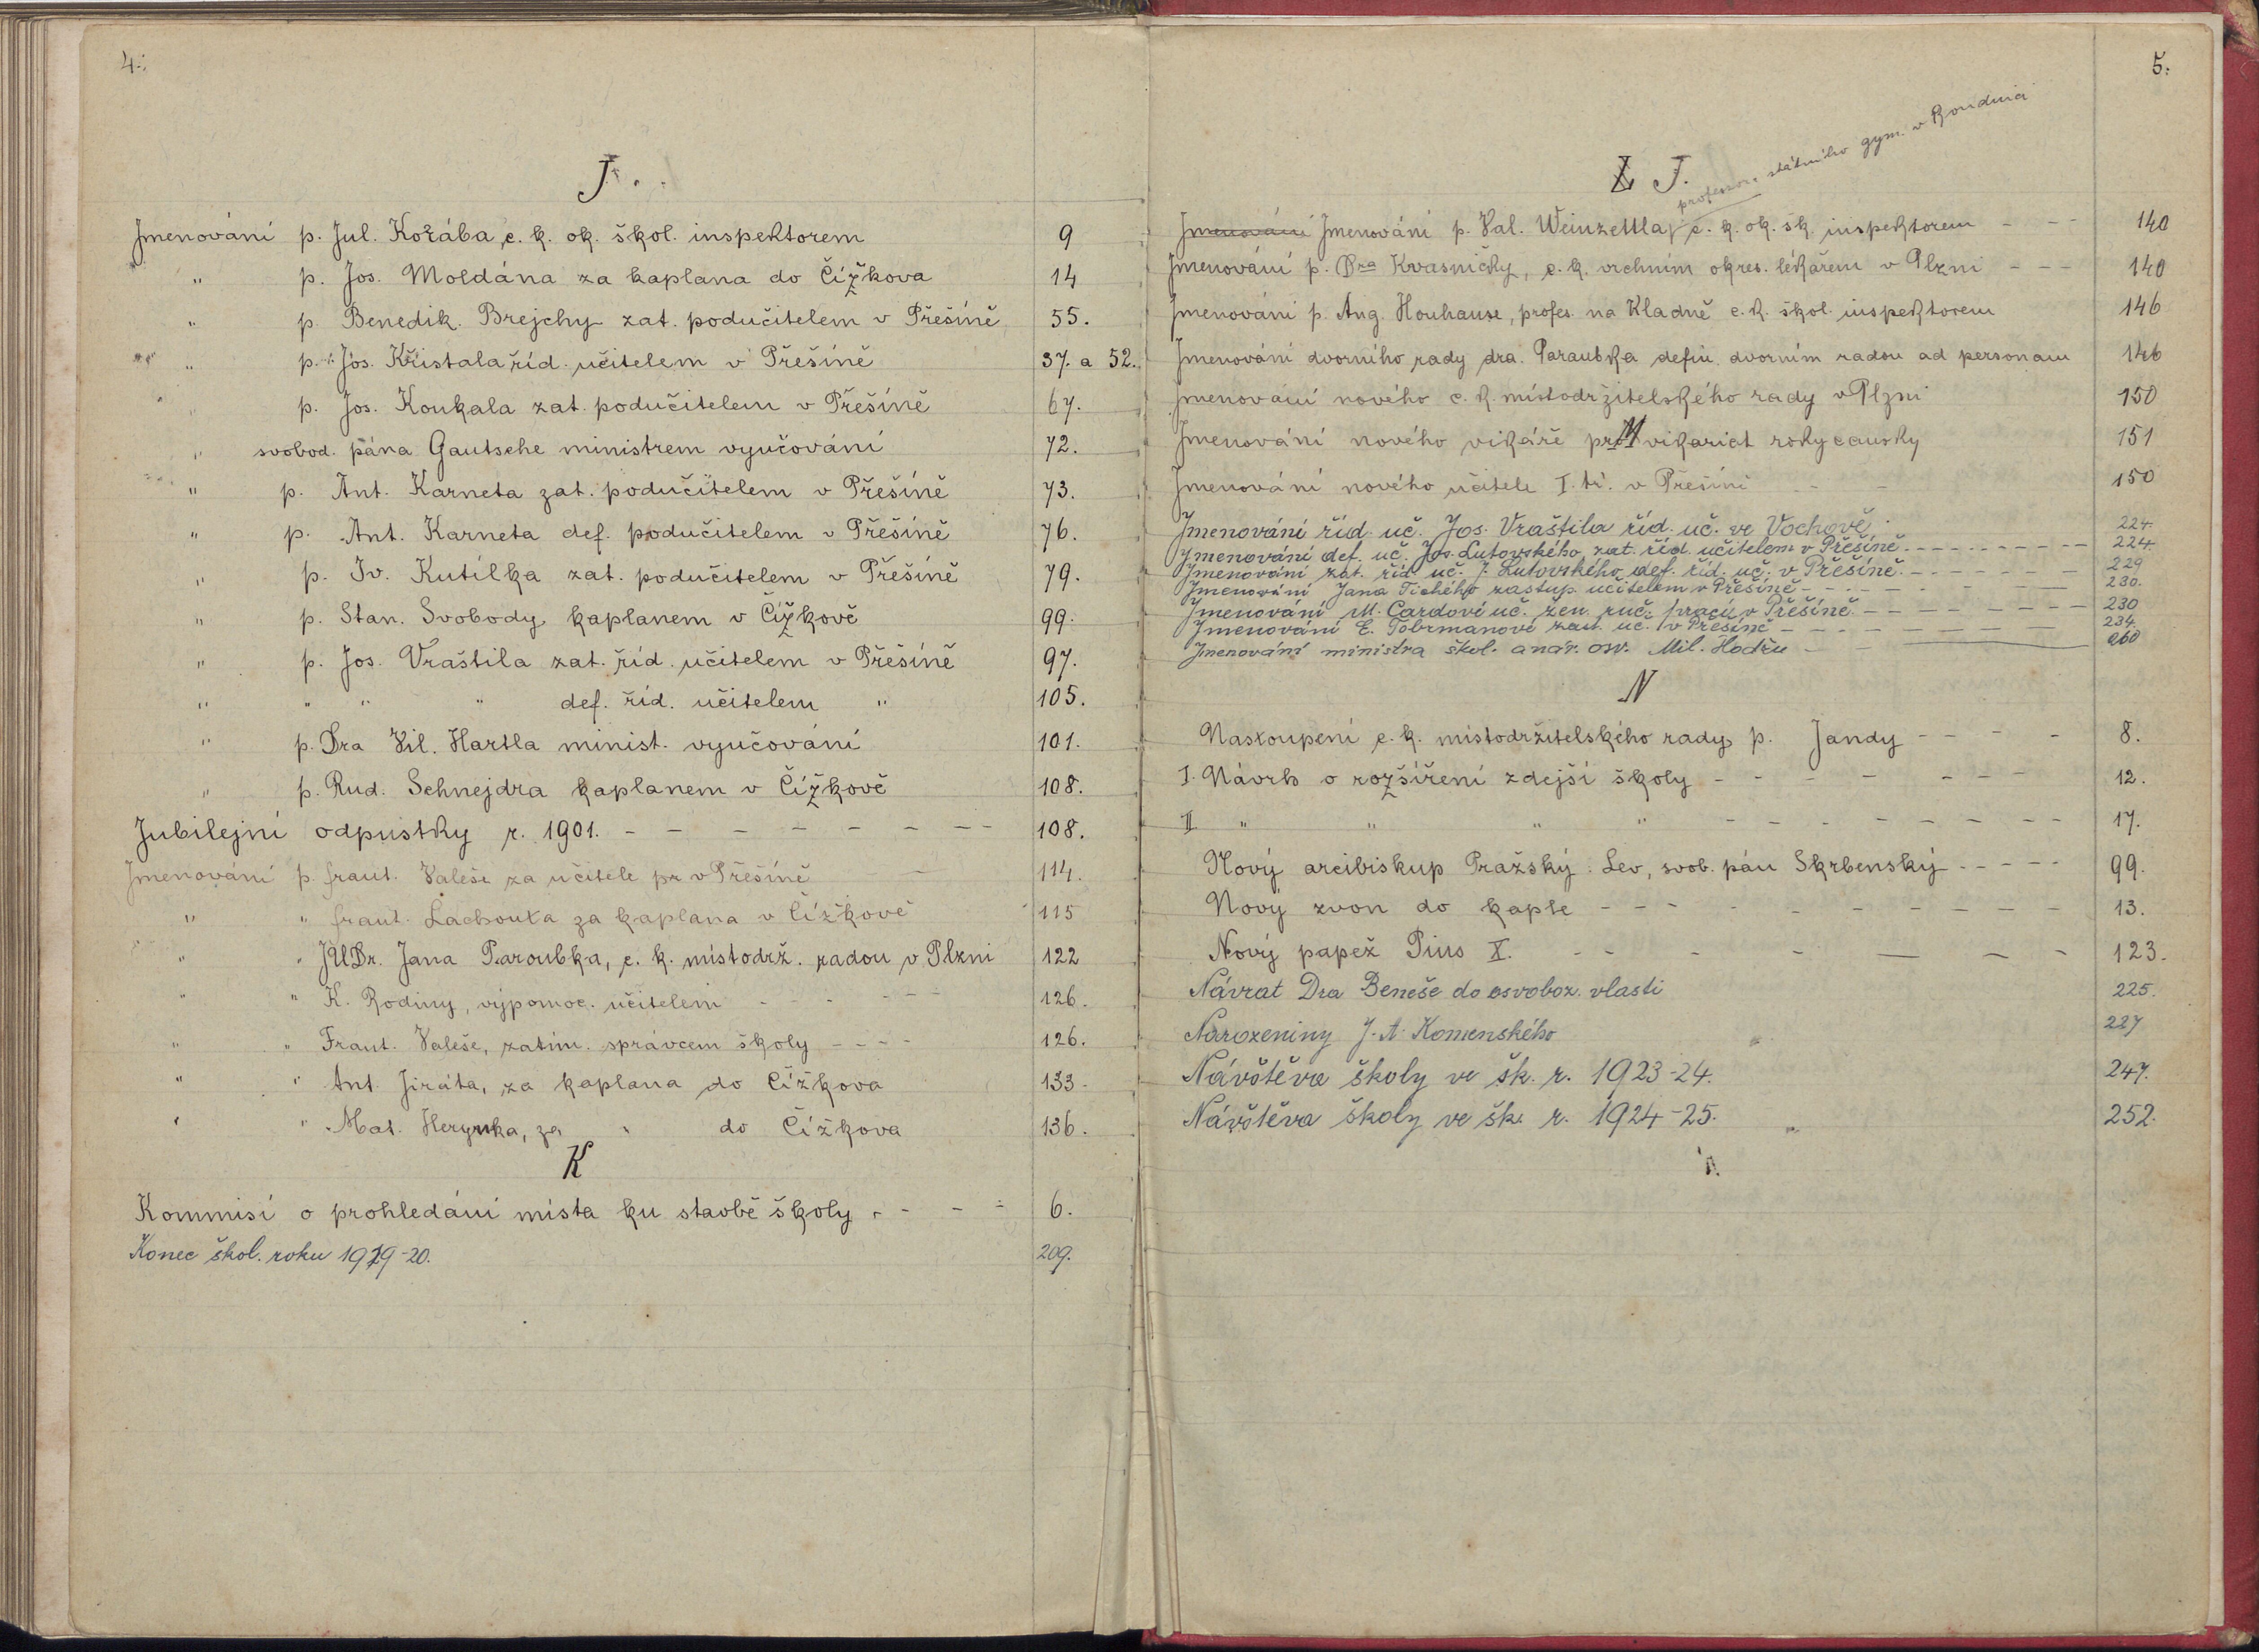 4.
J.
Jmenování p. Jul. Kořába c. k. ok. škol. inspektorem 9
" p. Jos. Moldána za kaplana do Čížkova 14
" p. Benedik. Brejchy zat. podučitelem v Přešíně 55.
" p. Jos. Křistala říd. učitelem v Přešíně 37. a 52.
" p. Jos. Koukala zat. podučitelem v Přešíně 67.
" svobod. pána Gautsche ministrem vyučování 72.
" p. Ant. Karneta zat. podučitelem v Přešíně 73.
" p. Ant. Karneta def. podučitelem v Přešíně 76.
" p. Iv. Kutilka zat. podučitelem v Přešíně 79.
" p. Stan. Svobody kaplanem v Čížkově 99.
" p. Jos. Vraštila zat. říd. učitelem v Přešíně 97.
" " " " def. říd. učitelem " 105.
" p. Dra Vil. Hartla minist. vyučování 101.
" p. Rud. Schnejdra kaplanem v Čížkově 108.
Jubilejní odpustky r. 1901. - - - - - - - - 108.
Jmenování p. Frant. Valeše za učitele pr v Přešíně - 114.
" " Frant. Lachouta za kaplana v Čížkově 115
" " JUDr. Jana Paroubka, c. k. místodrž. radou v Plzni 122
" " K. Rodiny, výpomoc. učitelem - - - - - 126.
" " Frant. Valeše, zatím. správcem školy - - - - 126.
" " Ant. Jiráta, za kaplana do Čížkova 133-
" " Mat. Herynka, za " do Čížkova 136.
K
Kommisí o prohledání místa ku stavbě školy - - - - 6.
Konec škol. roku 1919-20. 209.
5.
professora státního gym. v Roudnici
Z J.
Jmenování Jmenování p. Val. Weinzettla, c. k. ok. šk. inspektorem - - - 140
Jmenování p. Dra Kvasničky, c. k. vrchním okres. lékařem v Plzni - - - 140
Jmenování p. Aug. Houhause, profes. na Kladně c. k. škol. inspektorem 146
Jmenování dvorního rady dra. Paraubka defin. dvorním radou ad personam 146
Jmenování nového c. k. místodržitelského rady v Plzni 150
Jmenování nového vikáře pro vikariat rokycanský 151
Jmenování nového učitele I. tř. v Přešíně - - - 150
Jmenování říd. uč. Jos. Vraštila říd. uč. ve Vochově. 224.
Jmenování def. uč. Jos. Lutovského zat. říd. učitelem v Přešíně. - - - - - - - - 224.
Jmenování zat. říd. uč. J. Lutovského def. říd. uč. v Přešíně. - - - - - - - 229
Jmenování Jana Tichého zástup. učitelem v Přešíně - - - - - - - 230.
Jmenování M. Cardové uč. žen. ruč. prací v Přešíně - - - - - - - - 230
Jmenování E. Tobrmanové zast. uč. v Přešíně - - - - - - - 234.
Jmenování ministra škol. a nár. osv. Mil. Hodžu - - 260
N
Nastoupení c. k. místodržitelského rady p. Jandy - - - - 8.
I. Návrh o rozšíření zdejší školy - - - - - - - 12.
II. " " " " - - - - - - - - 17.
Nový arcibiskup Pražský: Lev, svob. pán Skrbenský - - - - - 99.
Nový zvon do kaple - - - - - - - - - - 13.
Nový papež Pius X. - - - - - - - 123.
Návrat Dra Beneše do osvoboz. vlasti 225.
Narozeniny J. A. Komenského 227
Návštěva školy ve šk. r. 1923-24. 247.
Návštěva školy ve šk. r. 1924-25. 252.